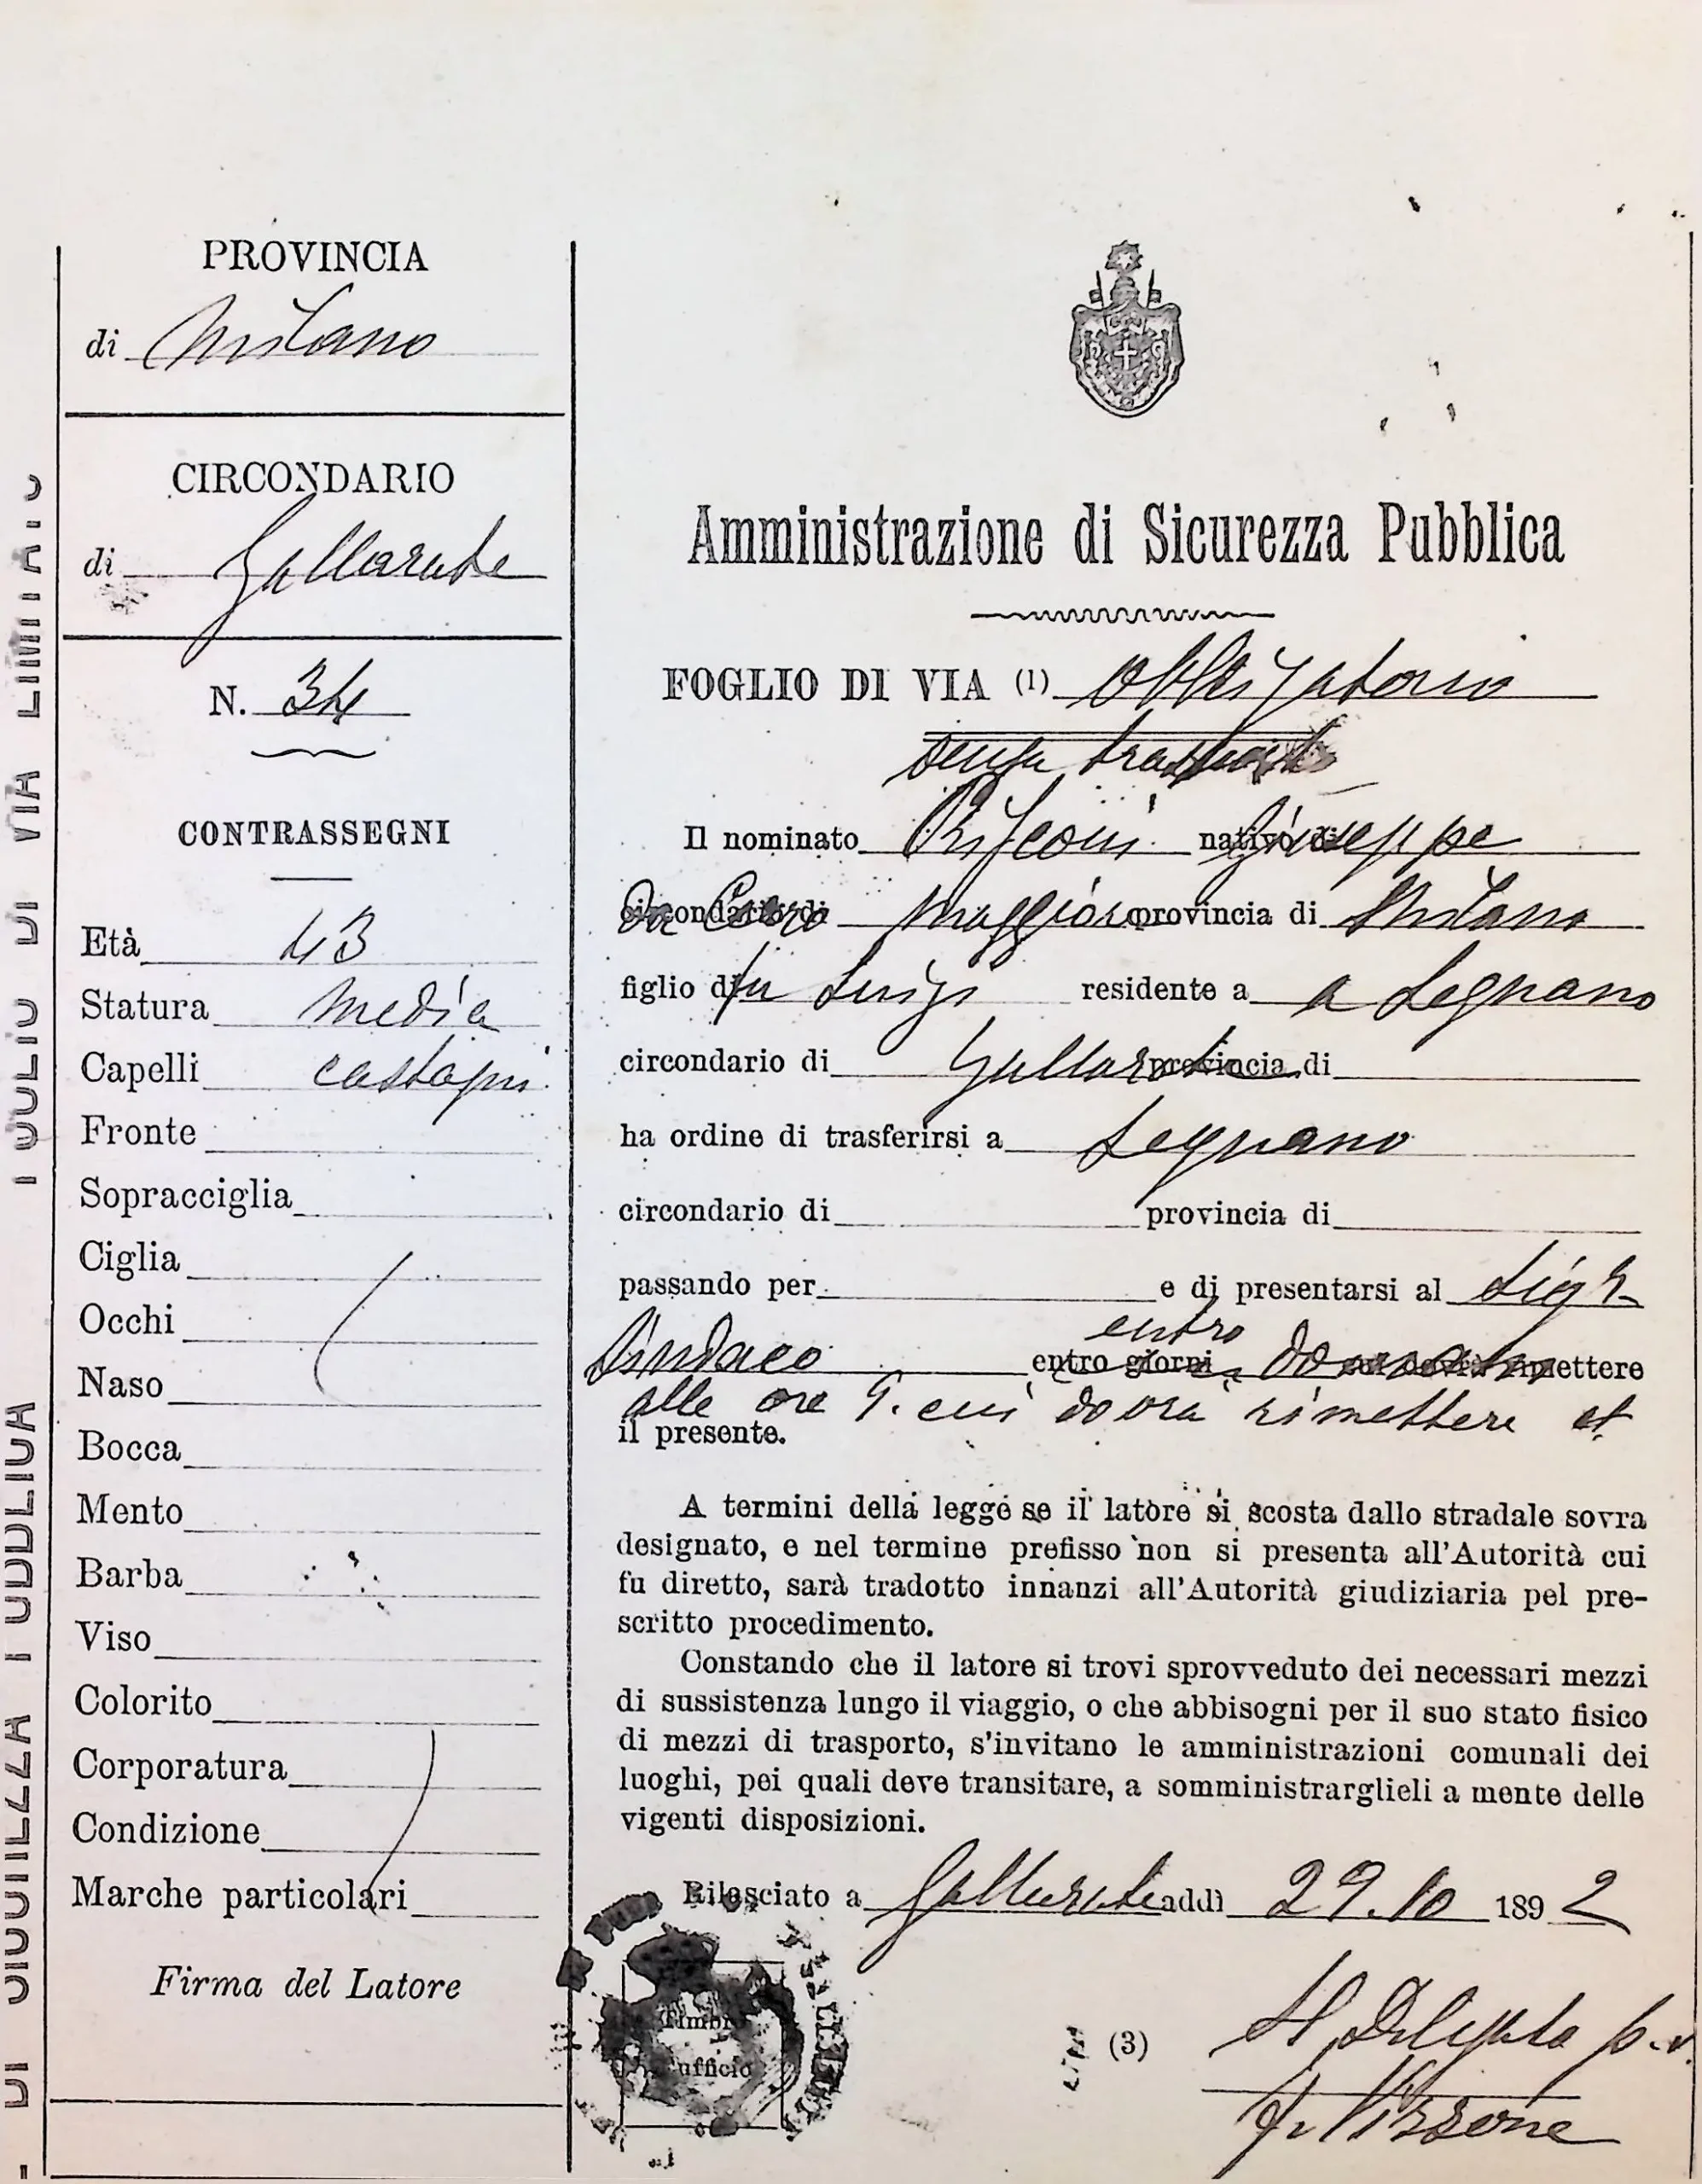 PROVINCIA
di Milano
CIRCONDARIO
di Gallarate
N. 34
CONTRASSEGNI
Età 43
Statura media
Capelli castagni
Fronte
Sopracciglia
Ciglia
Occhi
Naso
Bocca
Mento
Barba
Viso
Colorito
Corporatura
Condizione
Marche particolari
Firma del Latore
Amministrazione di Sicurezza Pubblica
FOGLIO DI VIA (1) obbligatorio
senza
Il nominato nativo di Giuseppe
circondario di Maggiore provincia di Milano
figlio di fu Luigi residente a a Legnano
circondario di Gallarate provincia di
ha ordine di trasferirsi a Legnano
circondario di provincia di
passando per e di presentarsi al Sigr
entro
Sindaco entro giorni domani cui dovrà rimettere
alle ore 9. cui dovrà rimettere
il presente.
A termini della legge se il latore si scosta dallo stradale sovra
designato, e nel termine prefisso non si presenta all'Autorità cui
fu diretto, sarà tradotto innanzi all'Autorità giudiziaria pel pre-
scritto procedimento.
Constando che il latore si trovi sprovveduto dei necessari mezzi
di sussistenza lungo il viaggio, o che abbisogni per il suo stato fisico
di mezzi di trasporto, s'invitano le amministrazioni comunali dei
luoghi, pei quali deve transitare, a somministrarglieli a mente delle
vigenti disposizioni.
Rilasciato a Gallarate addì 29.10 1892
Timbro
ufficio
(3)
Il Delegato